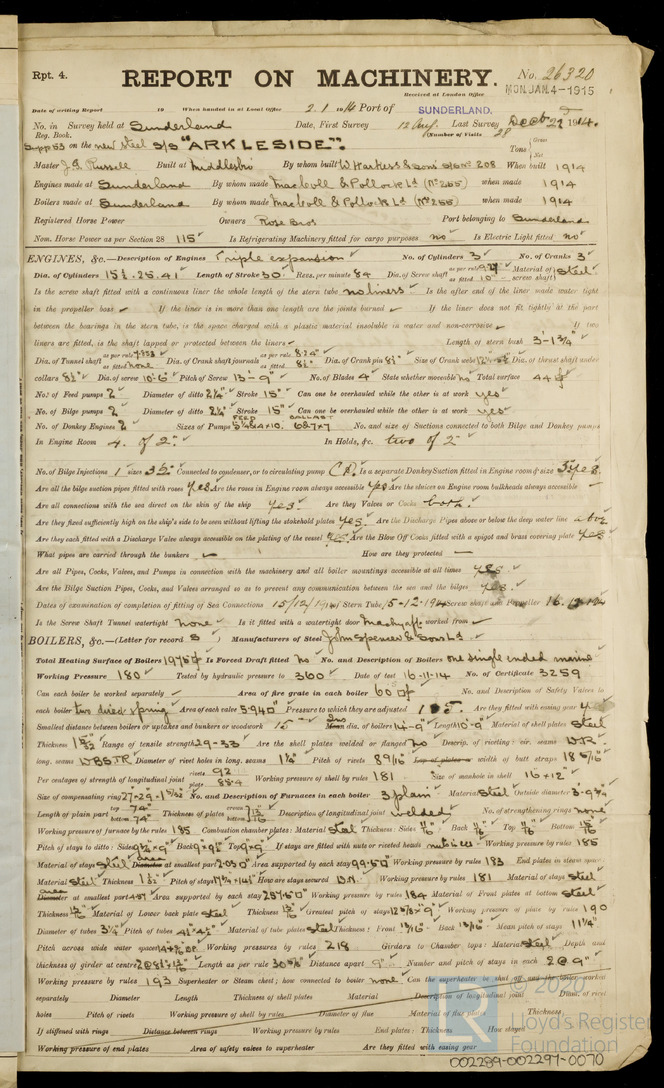 Rpt. 4.
REPORT ON MACHINERY.
No. 26320
Received at London Office
MON. JAN. 4 - 1915
Date of writing Report 19 When handed in at Local Office 2.1.1914 Port of SUNDERLAND.
No. in Survey held at Sunderland Date, First Survey 12 Aug. Last Survey Decb 29 1914.
Reg. Book. (Number of Visits 28
Supp 53 on the new steel S/S "ARKLESIDE". Tons Gross Net
Master J. G. Russell Built at Middlesbro By whom built W. Harkess & Sons When built 1914
Engines made at Sunderland By whom made MacColl & Pollock Ld (No 255) when made 1914
Boilers made at Sunderland By whom made MacColl & Pollock Ld (No 255) when made 1914
Registered Horse Power Owners Rose Bros Port belonging to Sunderland
Nom. Horse Power as per Section 28 115 Is Refrigerating Machinery fitted for cargo purposes no Is Electric Light fitted no
ENGINES, &c.—Description of Engines Triple expansion No. of Cylinders 3 No. of Cranks 3
Dia. of Cylinders 15½. 25. 41 Length of Stroke 30 Revs. per minute 84 Dia. of Screw shaft as per rule as fitted 10" Material of screw shaft steel
Is the screw shaft fitted with a continuous liner the whole length of the stern tube no liners Is the after end of the liner made water tight
in the propeller boss If the liner is in more than one length are the joints burned If the liner does not fit tightly at the part
between the bearings in the stern tube, is the space charged with a plastic material insoluble in water and non-corrosive If two
liners are fitted, is the shaft lapped or protected between the liners Length of stern bush 3'-1¾"
Dia. of Tunnel shaft as per rule as fitted none Dia. of Crank shaft journals as per rule 8.24" as fitted 8½" Dia. of Crank pin 8½" Size of Crank webs Dia. of thrust shaft under
collars 8½" Dia. of screw 10-6" Pitch of Screw 13-9" No. of Blades 4 State whether moveable no Total surface 44
No. of Feed pumps 2 Diameter of ditto 2¼" Stroke 15" Can one be overhauled while the other is at work yes
No. of Bilge pumps 2 Diameter of ditto 2¼" Stroke 15" Can one be overhauled while the other is at work yes
No. of Donkey Engines 2 Sizes of Pumps FEED BALLAST 6&7x7 No. and size of Suctions connected to both Bilge and Donkey pumps
In Engine Room 4. of 2" In Holds, &c. two of 2"
No. of Bilge Injections 1 sizes 3½" Connected to condenser, or to circulating pump C.P. Is a separate Donkey Suction fitted in Engine room & size yes.
Are all the bilge suction pipes fitted with roses yes Are the roses in Engine room always accessible yes Are the sluices on Engine room bulkheads always accessible
Are all connections with the sea direct on the skin of the ship yes. Are they Valves or Cocks both.
Are they fixed sufficiently high on the ship's side to be seen without lifting the stokehold plates yes. Are the Discharge Pipes above or below the deep water line above
Are they each fitted with a Discharge Valve always accessible on the plating of the vessel yes Are the Blow Off Cocks fitted with a spigot and brass covering plate yes
What pipes are carried through the bunkers How are they protected
Are all Pipes, Cocks, Valves, and Pumps in connection with the machinery and all boiler mountings accessible at all times yes
Are the Bilge Suction Pipes, Cocks, and Valves arranged so as to prevent any communication between the sea and the bilges yes.
Dates of examination of completion of fitting of Sea Connections 15/12/1914 Stern Tube 5-12-1914 Screw shaft and Propeller
Is the Screw Shaft Tunnel watertight none Is it fitted with a watertight door mach'y aft worked from
BOILERS, &c.—(Letter for record S) Manufacturers of Steel John Spencer & Sons Ld
Total Heating Surface of Boilers 1975 Is Forced Draft fitted no No. and Description of Boilers one single ended marine
Working Pressure 180 Tested by hydraulic pressure to 360 Date of test 16-11-14 No. of Certificate 3259
Can each boiler be worked separately Area of fire grate in each boiler 60 No. and Description of Safety Valves to
each boiler two direct spring Area of each valve 5.940" Pressure to which they are adjusted Are they fitted with easing gear
Smallest distance between boilers or uptakes and bunkers or woodwork 15" dia. of boilers 14-9" Length 10'-9" Material of shell plates steel
Thickness 1 5/32 Range of tensile strength 29-33 Are the shell plates welded or flanged no Descrip. of riveting: cir. seams
long. seams Diameter of rivet holes in long. seams 1¼" Pitch of rivets 8 9/16 width of butt straps 18 5/16"
Per centages of strength of longitudinal joint rivets 92 plate 85.4 Working pressure of shell by rules 181 Size of manhole in shell 16x12"
Size of compensating ring No. and Description of Furnaces in each boiler 3 plain Material steel Outside diameter
Length of plain part top 74" bottom 74" Thickness of plates crown bottom Description of longitudinal joint welded No. of strengthening rings none
Working pressure of furnace by the rules 185 Combustion chamber plates: Material steel Thickness: Sides Back Top Bottom
Pitch of stays to ditto: Sides Back 9x9½ Top 9x9 If stays are fitted with nuts or riveted heads nuts Working pressure by rules 185
Material of stays steel at smallest part 2.03 Area supported by each stay Working pressure by rules 183 End plates in steam space:
Material steel Thickness Pitch of stays How are stays secured D.N. Working pressure by rules 181 Material of stays steel
at smallest part Area supported by each stay Working pressure by rules 184 Material of Front plates at bottom steel
Thickness Material of Lower back plate steel Thickness Greatest pitch of stays Working pressure of plate by rules 190
Diameter of tubes 3¼" Pitch of tubes Material of tube plates steel Thickness: Front Back Mean pitch of stays 11¼"
Pitch across wide water spaces Working pressures by rules 218 Girders to Chamber tops: Material steel Depth and
thickness of girder at centre Length as per rule Distance apart 9" Number and pitch of stays in each 2 @ 9"
Working pressure by rules 193 Superheater or Steam chest; how connected to boiler none Can the superheater be shut off and the boiler worked
separately Diameter Length Thickness of shell plates Material Description of longitudinal joint Diam. of rivet
holes Pitch of rivets Working pressure of shell by rules Diameter of flue Material of flue plates Thickness
If stiffened with rings Distance between rings Working pressure by rules End plates: Thickness How stayed
Working pressure of end plates Area of safety valves to superheater Are they fitted with easing gear
© 2020
Lloyd's Register
Foundation
002289-002297-0070